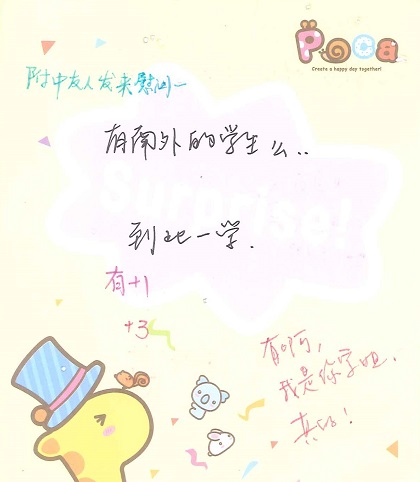 Poca
Create a happy day together!
附中友人发来慰问~
有南外的学生么..
Surprise!
到此一学.
有+1
+3
有啊,
我是你学姐.
真的!